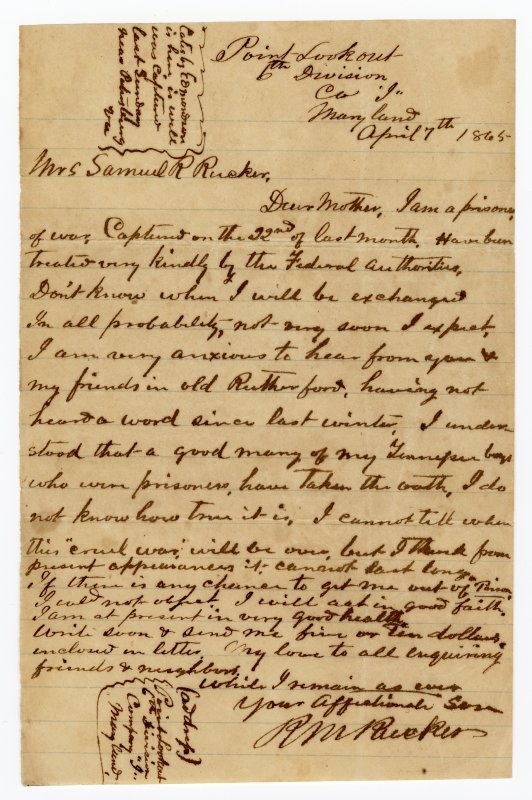 Point Lookout
6th Division
Co "I"
Maryland
April 7th 1865
Catesby Edmondson
is here, is well
was Captured
last Sunday
near Petersburg
Va
Mrs Samuel R Rucker,
Dear Mother, I am a prisoner
of war, Captured on the 22nd of last month, Have been
treated very kindly by the Federal authorities,
Don't know when I will be exchanged
In all probability, not very soon I expect,
I am very anxious to hear from you &
my friends in old Rutherford, having not
heard a word since last winter, I under-
stood that a good many of my Tennessee boys
who were prisoners, have taken the oath, I do
not know how true it is, I cannot tell when
this "cruel war" will be over, but I think from
present appearances it, cannot last long.
If there is any chance to get me out of Prison,
I wld not object I will act in good faith.
I am at present in very good health
Write soon & send me five or ten dollars,
enclosed in letter, My love to all enquiring
friends & neighbors,
while I remain as ever
Your Affectionate Son
R M Rucker
(address)
Point Lookout
6th Division
Company
Maryland